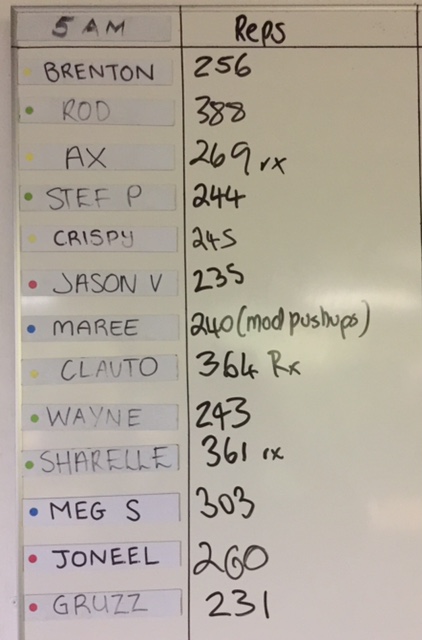 5 AM Reps
BRENTON 256
ROD 388
AX 269 rx
STEF P 244
CRISPY 245
JASON V 235
MAREE 240 (mod pushups)
CLAUTO 364 Rx
WAYNE 243
SHARELLE 361 rx
MEG S 303
JONEEL 260
GRUZZ 231